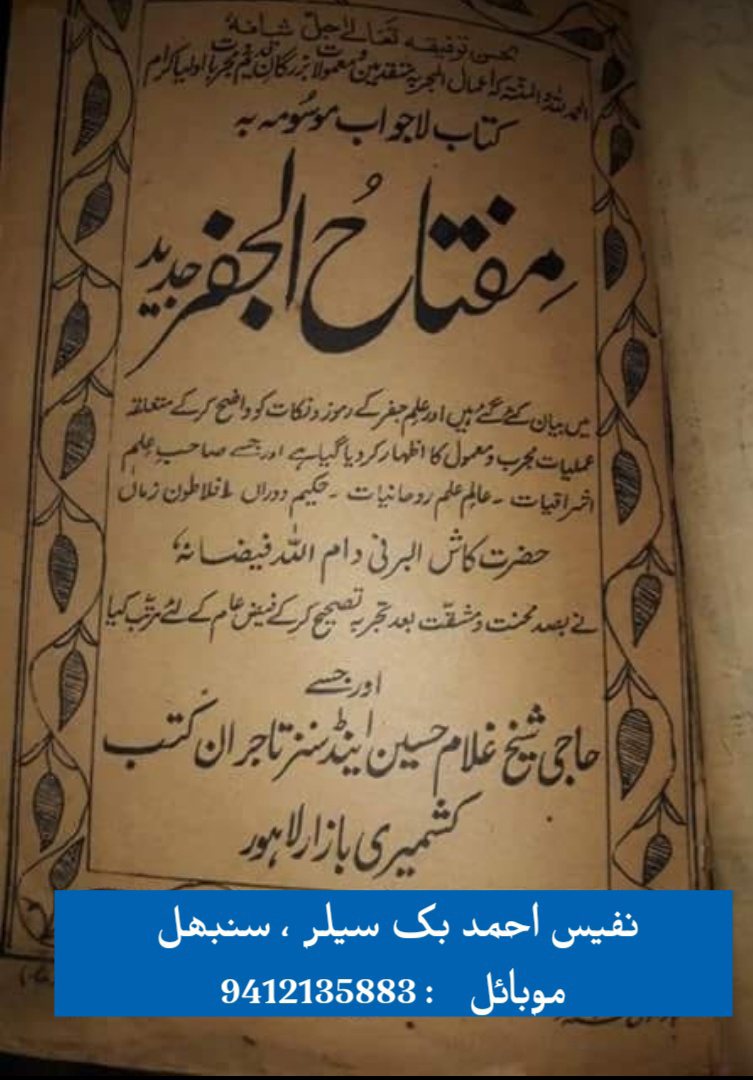 بحسن توفیقہ تعالےٰ جل شانہٗ
الحمد للہ والمنتہ کہ اعمال المجربہ متقدمین و معمولات بزرگان قدیم و مجربات اولیا کرام
کتاب لاجواب موسومہ بہ
مفتاحُ الجفر جدید
میں بیان کئے گئے ہیں اور علم جفر کے رموز و نکات کو واضح کر کے متعلقہ
عملیات مجرب و معمول کا اظہار کر دیا گیا ہے اور جسے صاحب علم
اشراقیات ۔ عالم علم روحانیات ۔ حکیم دوراں افلاطون زماں
حضرت کاش البرنی دام اللہ فیضانہٗ
نے بصد محنت و مشقت بعد تجربہ تصحیح کر کے فیض عام کے لئے مرتب کیا
اور جسے
حاجی شیخ غلام حسین اینڈ سنز تاجران کتب
کشمیری بازار لاہور
نفیس احمد بک سیلر ، سنبھل
موبائل : 9412135883